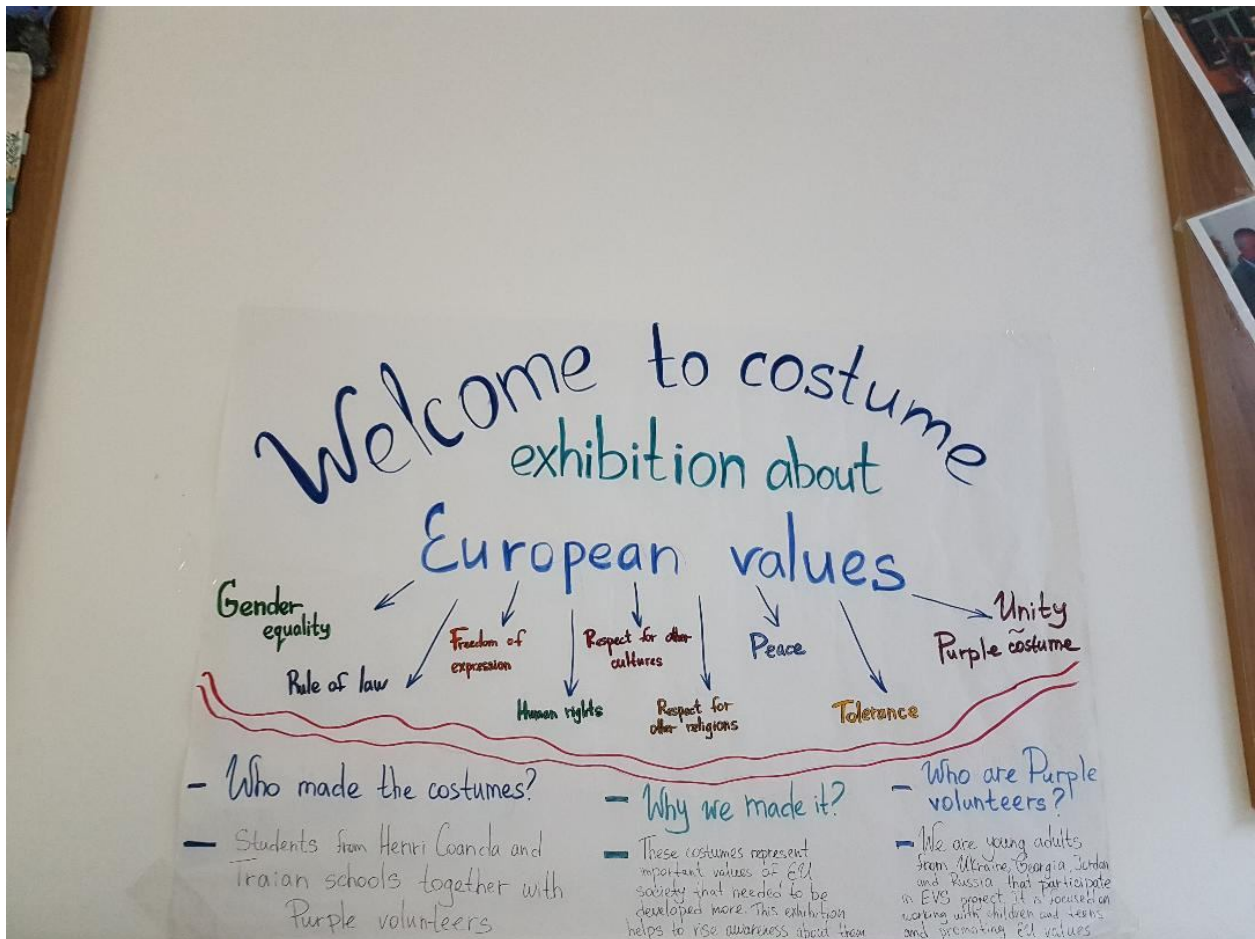 Welcome to costume
exhibition about
European values
Gender
equality
Rule of law
Freedom of
expression
Human rights
Respect for other
cultures
Respect for
other religions
Peace
Tolerance
Unity
~
Purple costume
- Who made the costumes?
- Students from Henri Coanda and
Traian schools together with
Purple volunteers
- Why we made it?
- These costumes represent
important values of EU
society that needed to be
developed more. This exhibition
helps to rise awareness about them
- Who are Purple
volunteers?
- We are young adults
from Ukraine, Georgia, Jordan
and Russia that participate
in EVS project. It is focused on
working with children and teens
and promoting EU values